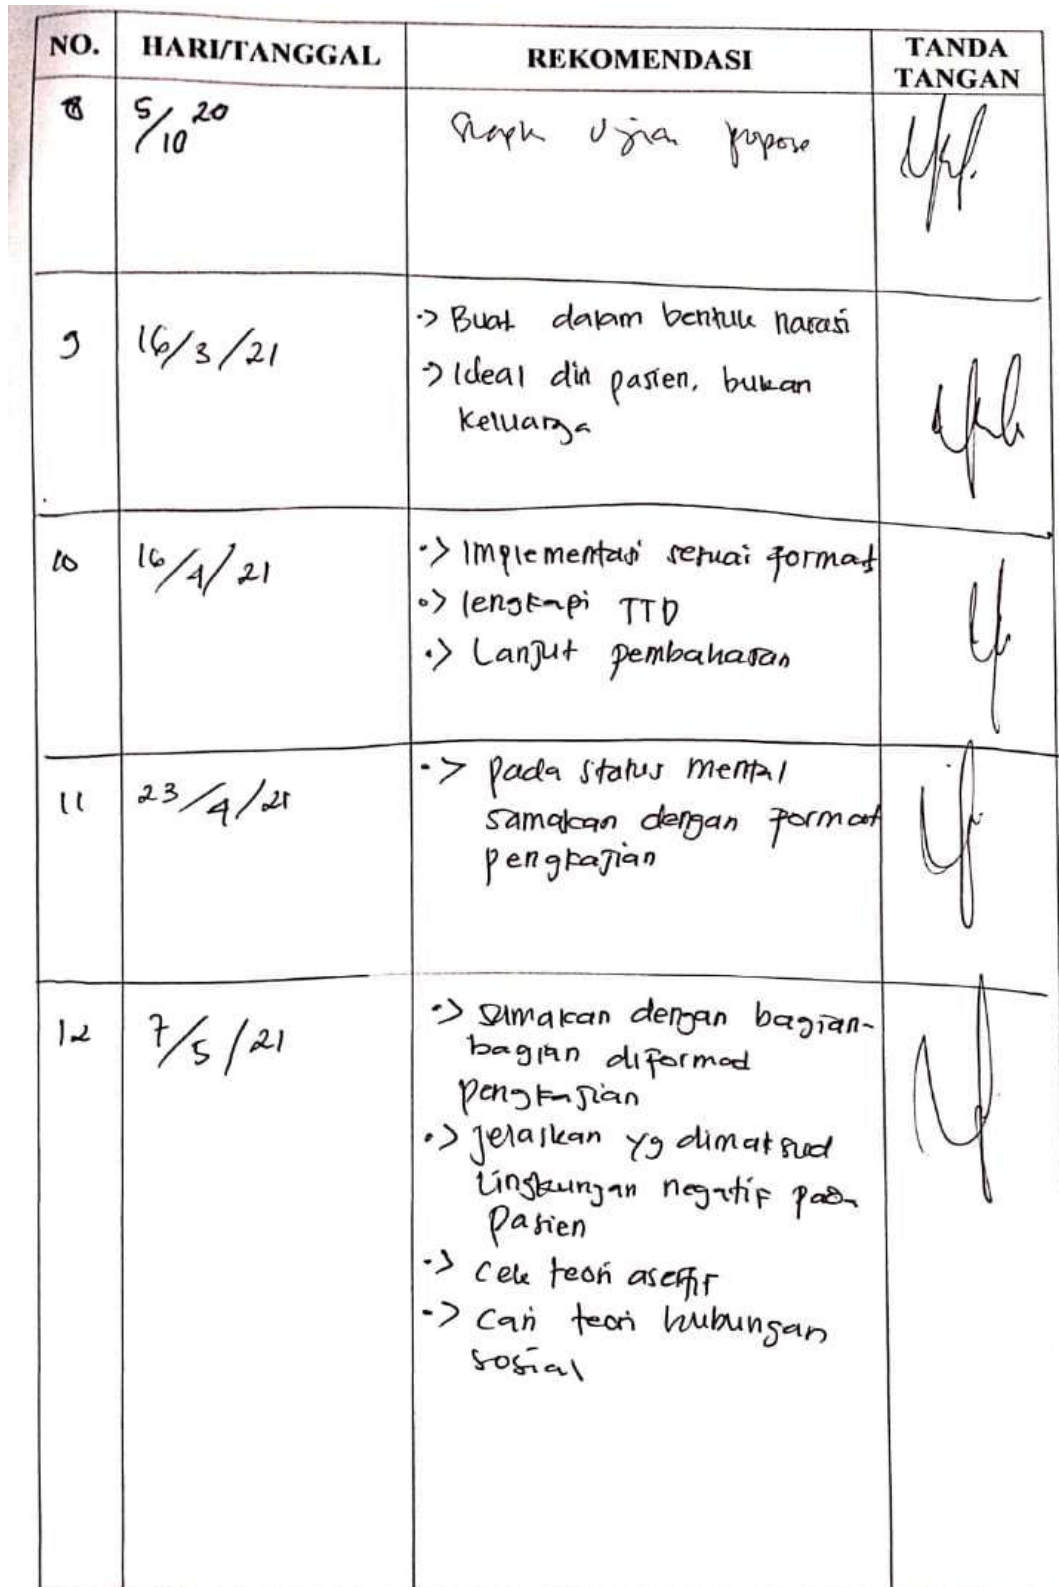 NO. HARI/TANGGAL REKOMENDASI TANDA TANGAN
8 5/10 20 ujian
9 16/3/21 -> Buat dalam bentuk narasi
-> Ideal diri pasien, bukan
keluarga
10 16/4/21 -> Implementasi sesuai format
-> lengkapi TTD
-> Lanjut pembahasan
11 23/4/21 -> pada status mental
samakan dengan format
pengkajian
12 7/5/21 -> samakan dengan bagian-
bagian diformad
pengkajian
-> jelaskan yg dimaksud
lingkungan negatif pada
pasien
-> cek teori asertif
-> Cari teori hubungan
sosial